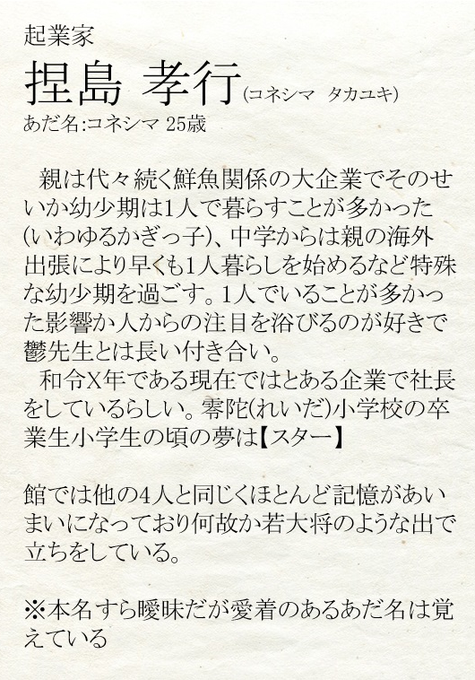 起業家
捏島 孝行(コネシマ タカユキ)
あだ名:コネシマ 25歳
親は代々続く鮮魚関係の大企業でそのせ
いか幼少期は1人で暮らすことが多かった
(いわゆるかぎっ子)、中学からは親の海外
出張により早くも1人暮らしを始めるなど特殊
な幼少期を過ごす。1人でいることが多かっ
た影響か人からの注目を浴びるのが好きで
鬱先生とは長い付き合い。
和令X年である現在ではとある企業で社長
をしているらしい。零陀(れいだ)小学校の卒
業生小学生の頃の夢は【スター】
館では他の4人と同じくほとんど記憶があい
まいになっており何故か若大将のような出で
立ちをしている。
※本名すら曖昧だが愛着のあるあだ名は覚
えている